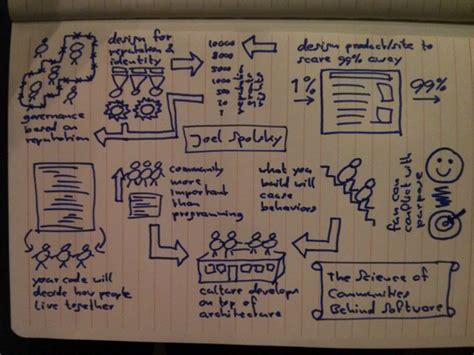 design for
reputation &
identity
10000
design product/site to
scare 99% away
1%
99%
governance
based on
reputation
Joel Spolsky
community
more
important
than
programming
what you
build will
cause
behaviors
conflict with
purpose
your code will
decide how people
live together
culture develops
on top of
architecture
The Science of
Communities
Behind Software